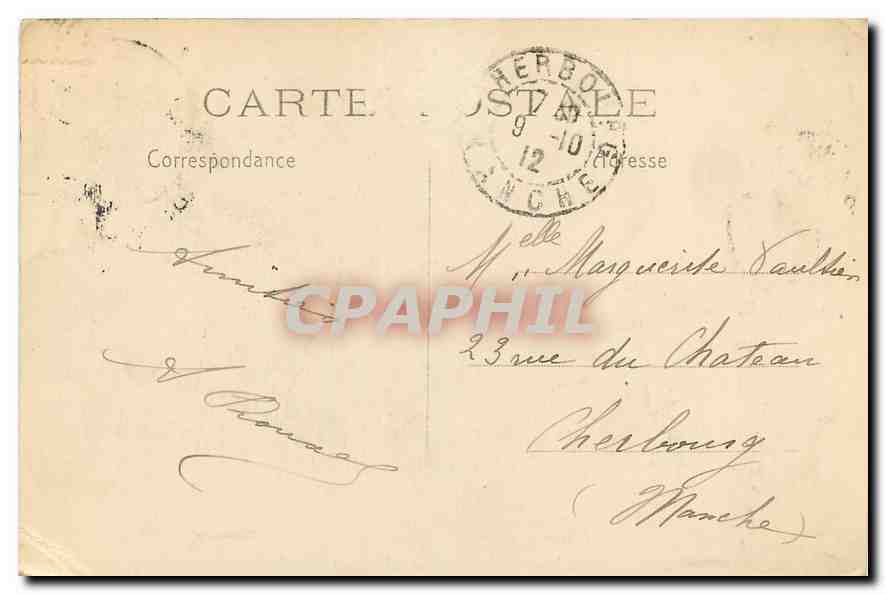 CARTE POSTALE
Correspondance
Adresse
CHERBOURG
7
9 -10
12
MANCHE
Amitiés
Melle Marguerite Vaultier
CPAPHIL
23 rue du Chateau
Cherbourg
(Manche)